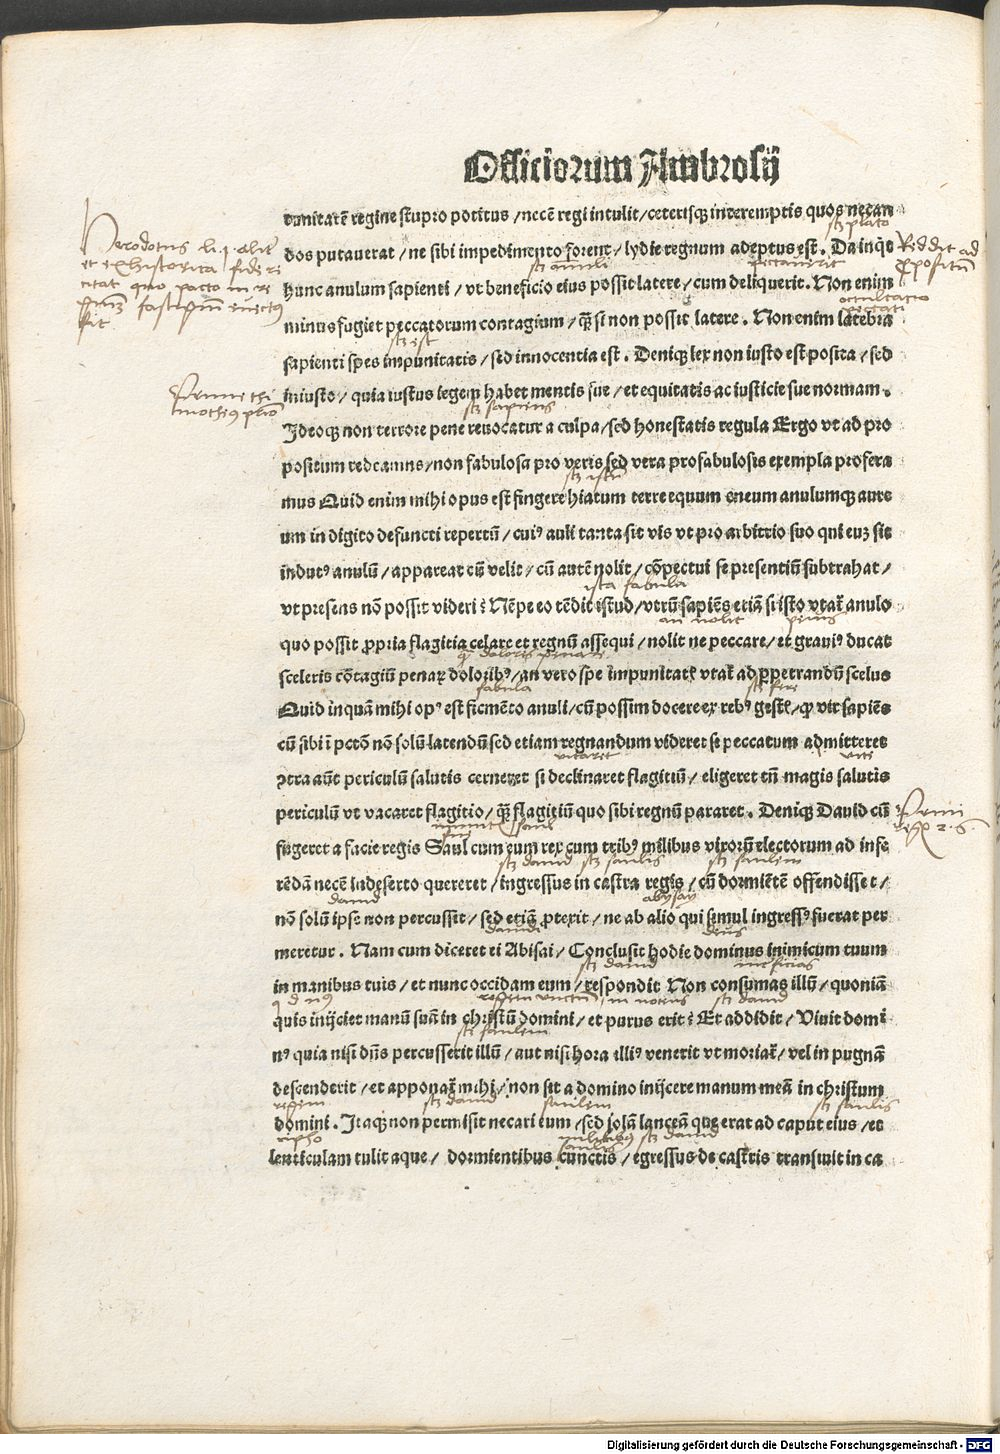 Officiorum Ambrosij
tunitatē regine stupro potitus / necē regi intulit / ceterisqꝫ interemptis quos necan
stz plato
dos putauerat / ne sibi impedimento forent / lydie regnum adeptus est . Da inqͣt
Reddit ad
ꝓpositū
Herodotus li. j. alit͛
et ex historia fide re
citat quo pacto in re
fastigiū euectꝰ
sit
stz anuli
peccauerit
hunc anulum sapienti / vt beneficio eius possit latere / cum deliquerit . Non enim
occultatio
peccati
minus fugiet peccatorum contagium / qͣꝫ si non possit latere . Non enim latebra
stz est
sapienti spes impunitatis / sed innocentia est . Deniqꝫ lex non iusto est posita / sed
Prime thi
motheꝰ primo
iniusto / quia iustus legem habet mentis sue / et equitatis ac iusticie sue normam .
stz sapiens
Ideoqꝫ non terrore pene reuocatur a culpa / sed honestatis regula Ergo vt ad pro
positum redeamus / non fabulosa pro veris sed vera profabulosis exempla profera
mus Quid enim mihi opus est fingere hiatum terre equum eneum anulumqꝫ aure
um in digito defuncti repertū / cuiꝰ auli tanta sit vis vt pro arbitrio suo qui euꝫ sit
indutꝰ anulū / appareat cū velit / cū autē nolit / cōpectui se presentiū subtrahat /
ista fabula
vt presens nō possit videri : Nēpe eo tēdit istud / vtrū sapiēs etiā si isto vtat͛ anulo
an nolit
prius
quo possit ꝓpria flagitia celare et regnū assequi / nolit ne peccare / et grauiꝰ ducat
sceleris cōtagiū penaꝝ doloribꝰ / an vero spe impunitatꝭ vtat͛ ad ꝑpetrandū scelus
fabula
Quid inquā mihi opꝰ est ficmēto anuli / cū possim docere ex rebꝰ gestꝭ / ꝙ vir sapiēs
cū sibi ī pctō nō solū latendū sed etiam regnandum videret si peccatum admitteret
vitaret
vite
ꝯtra aūt periculū salutis cerneret si declinaret flagitiū / eligeret tn̄ magis salutis
periculū vt vacaret flagitio / qͣꝫ flagitiū quo sibi regnū pararet . Deniqꝫ Dauid cū
Primi
regꝝ 26.
fugeret a facie regis Saul cum eum rex cum tribꝰ milibus virorū electorum ad infe
stz dauid
stz saulis
stz saulem
rēdā necē indeserto quereret / ingressus in castra regis / cū dormiētē offendisset /
dauid
abysay
nō solū ipse non percussit / sed etiā ꝓtexit / ne ab alio qui simul ingressꝰ fuerat per
dauidi
deus
meretur . Nam cum diceret ei Abisai / Conclusit hodie dominus inimicum tuum
stz dauid
interficias
in manibus tuis / et nunc occidam eum / respondit Non consumas illū / quoniā
regem vnctū
stz dauid
quis inijciet manū suā in christū domini / et purus erit : Et addidit / Viuit domi
stz saulem
nꝰ quia nisi dn̄s percusserit illū / aut nisi hora illiꝰ venerit vt moriat͛ / vel in pugnā
descenderit / et apponat͛ mihi / non sit a domino inijcere manum meā in christum
regem
stz dauid
saulem
stz saulis
domini . Itaqꝫ non permisit necari eum / sed solā lanceā que erat ad caput eius / et
stz dauid
lenticulam tulit aque / dormientibus cunctis / egressus de castris transiuit in ca
Digitalisierung gefördert durch die Deutsche Forschungsgemeinschaft - DFG